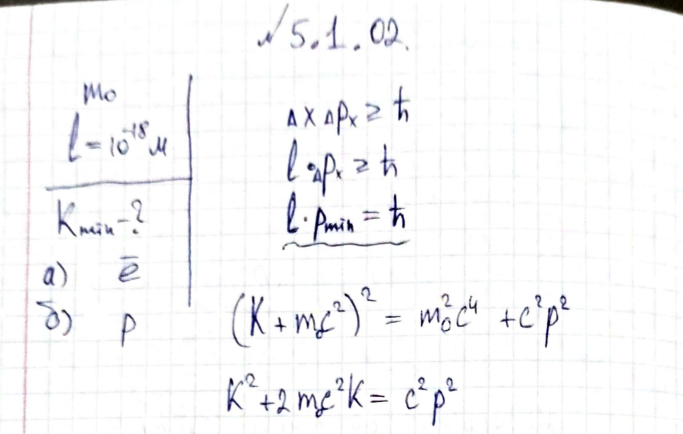 №5.1.02.
m₀
l = 10⁻¹⁸ м
Kmin - ?
а) ē
б) p
Δx Δpₓ ≥ ħ
l · Δpₓ ≥ ħ
l · pmin = ħ
(K + m₀c²)² = m₀²c⁴ + c²p²
K² + 2m₀c²K = c²p²